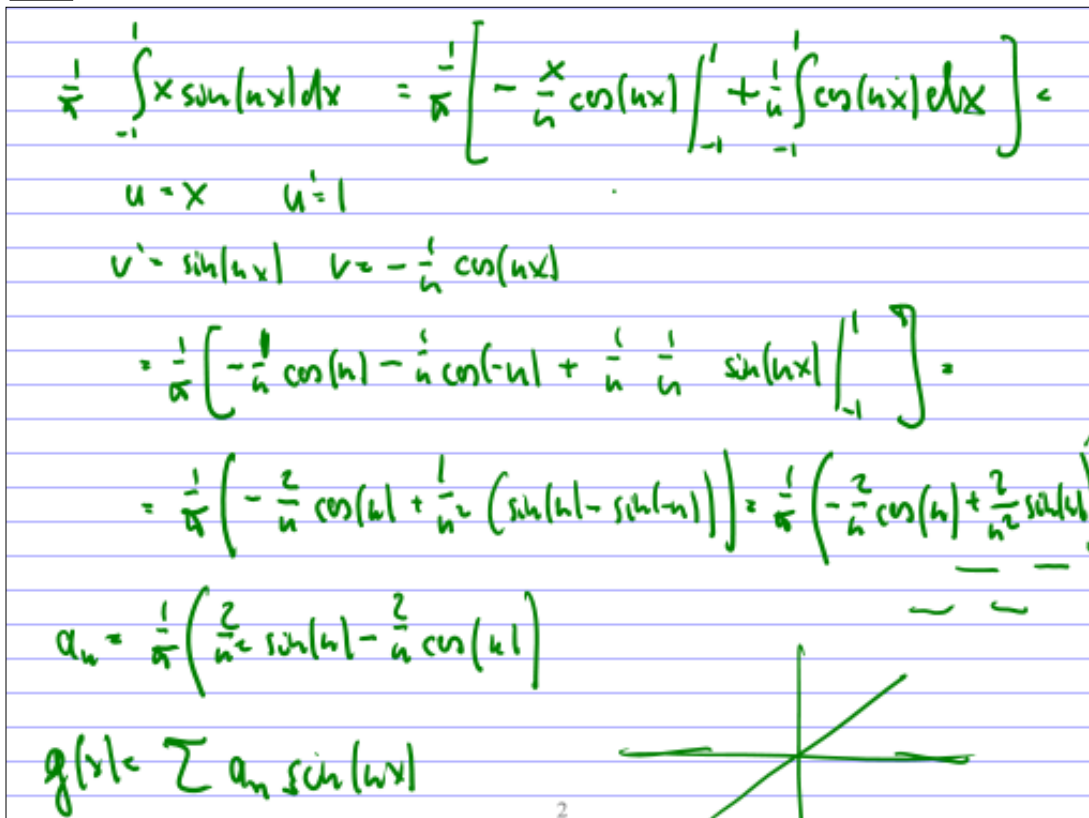 1/π ∫_{-1}^{1} x sin(nx) dx = 1/π [ - x/n cos(nx) |_{-1}^{1} + 1/n ∫_{-1}^{1} cos(nx) dx ] =
u = x   u' = 1
v' = sin(nx)   v = - 1/n cos(nx)
= 1/π [ - 1/n cos(n) - 1/n cos(-n) + 1/n 1/n sin(nx) |_{-1}^{1} ] =
= 1/π ( - 2/n cos(n) + 1/n² ( sin(n) - sin(-n) ) ) = 1/π ( - 2/n cos(n) + 2/n² sin(n) )
a_n = 1/π ( 2/n² sin(n) - 2/n cos(n) )
g(x) = Σ a_n sin(nx)
2